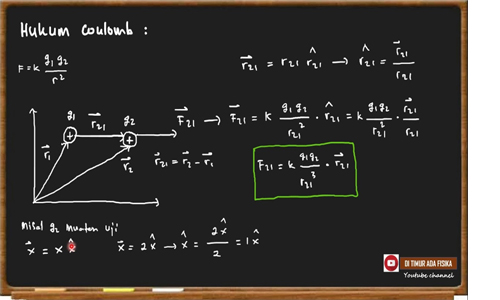 Hukum Coulomb :
F = k g1 g2 / r²
r⃗21 = r21 r̂21 → r̂21 = r⃗21 / r21
g1 r⃗21 g2 F⃗21 → F⃗21 = k g1 g2 / r21² · r̂21 = k g1 g2 / r21² · r⃗21 / r21
r⃗1 r⃗2 r⃗21 = r⃗2 - r⃗1
F21 = k g1 g2 / r21³ · r⃗21
Misal g2 muatan uji
x⃗ = x x̂ x⃗ = 2 x̂ → x̂ = 2x̂ / 2 = 1 x̂
DI TIMUR ADA FISIKA
Youtube channel